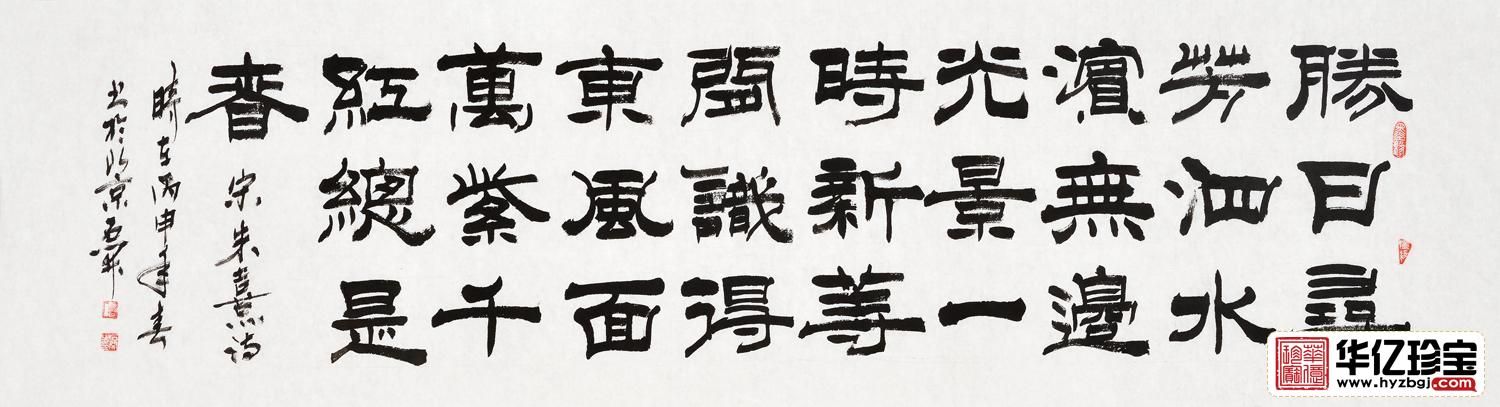 勝日尋
芳泗水
濱無邊
光景一
時新等
閒識得
東風面
萬紫千
紅總是
春
宋朱熹诗
時在丙申年春
书於北京
华亿珍宝
www.hyzbgj.com